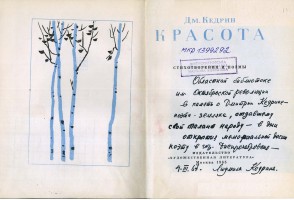 Дм. Кедрин
КРАСОТА
СТИХОТВОРЕНИЯ И ПОЭМЫ
Областной библиотеке
им Октябрьской революции
в память о Дмитрии Кедрине-
поэте-земляке, отдавшему
свой талант народу – в дни
открытия мемориальной доски
поэту в гор. Днепропетровске –
ИЗДАТЕЛЬСТВО
«ХУДОЖЕСТВЕННАЯ ЛИТЕРАТУРА»
Москва 1965
Людмила Кедрина.